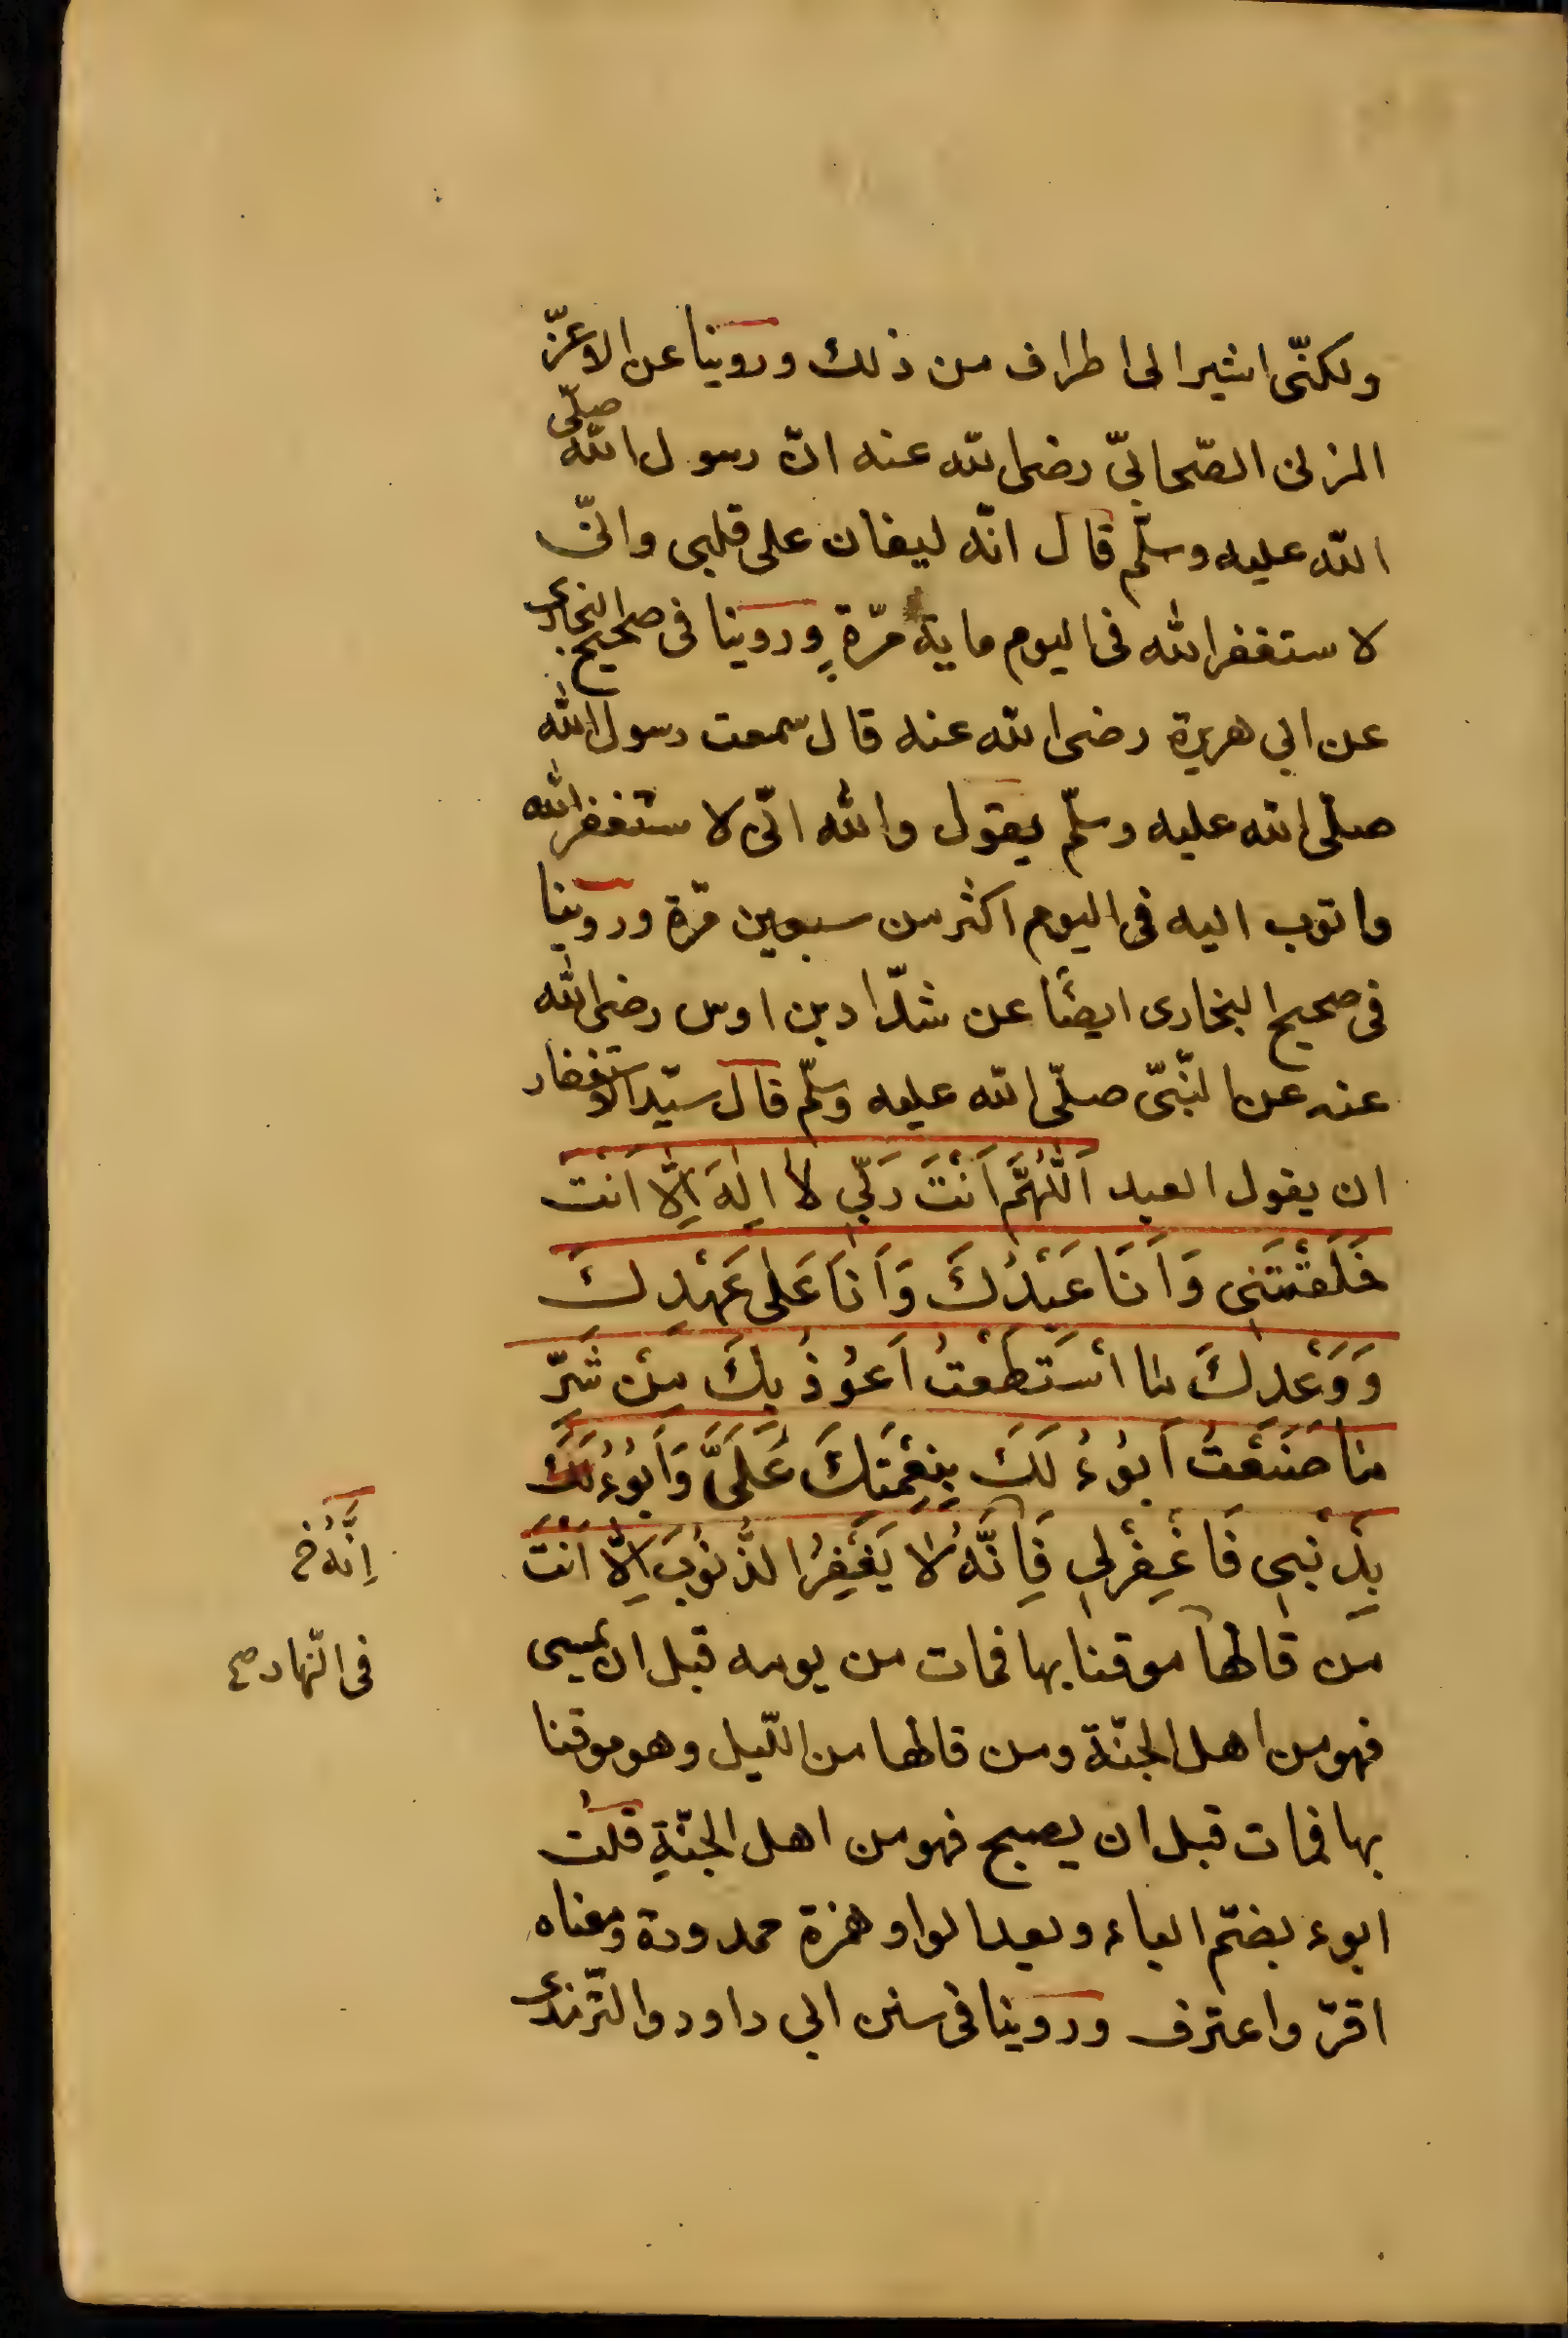 ولكنّى اشير الى اطراف من ذلك وروينا عن الاغرّ
المزنى الصّحابىّ رضى الله عنه انّ رسول الله صلّى
الله عليه وسلّم قال انّه ليغان على قلبى وانّى
لاستغفر الله فى اليوم ماية مرّةٍ وروينا فى صحيح البخارى
عن ابى هريرة رضى الله عنه قال سمعت رسول الله
صلّى الله عليه وسلّم يقول والله انّى لاستغفر الله
واتوب اليه فى اليوم اكثر من سبعين مرّة وروينا
فى صحيح البخارى ايضًا عن شدّاد بن اوس رضى الله
عنه عن النّبىّ صلّى الله عليه وسلّم قال سيّد الاستغفار
ان يقول العبد اَللّٰهُمَّ اَنْتَ رَبّىِ لا اِلٰهَ اِلّا اَنْتَ
خَلَقْتَنِى وَاَنَا عَبْدُكَ وَاَنَا عَلٰى عَهْدِكَ
وَوَعْدِكَ مَا اسْتَطَعْتُ اَعُوْذُ بِكَ مِنْ شَرِّ
مَا صَنَعْتُ اَبُوْءُ لَكَ بِنِعْمَتِكَ عَلَىَّ وَاَبُوْءُ لَكَ
بِذَنْبِى فَاغْفِرْلِى فَاِنَّهُ لَا يَغْفِرُ الذُّنُوْبَ اِلّا اَنْتَ
مَن قالها موقنا بها فمات من يومه قبل ان يمسى
فهو من اهل الجنّة ومن قالها من اللّيل وهو موقنا
بها فمات قبل ان يصبح فهو من اهل الجنّةِ قلتُ
ابوء بضمّ الباء وبعد الواو همزة ممدودة ومعناه
اقرّ واعترف وروينا فى سنن ابى داود والتّرمذى
اِنَّهُ خ
فى النّهار صح